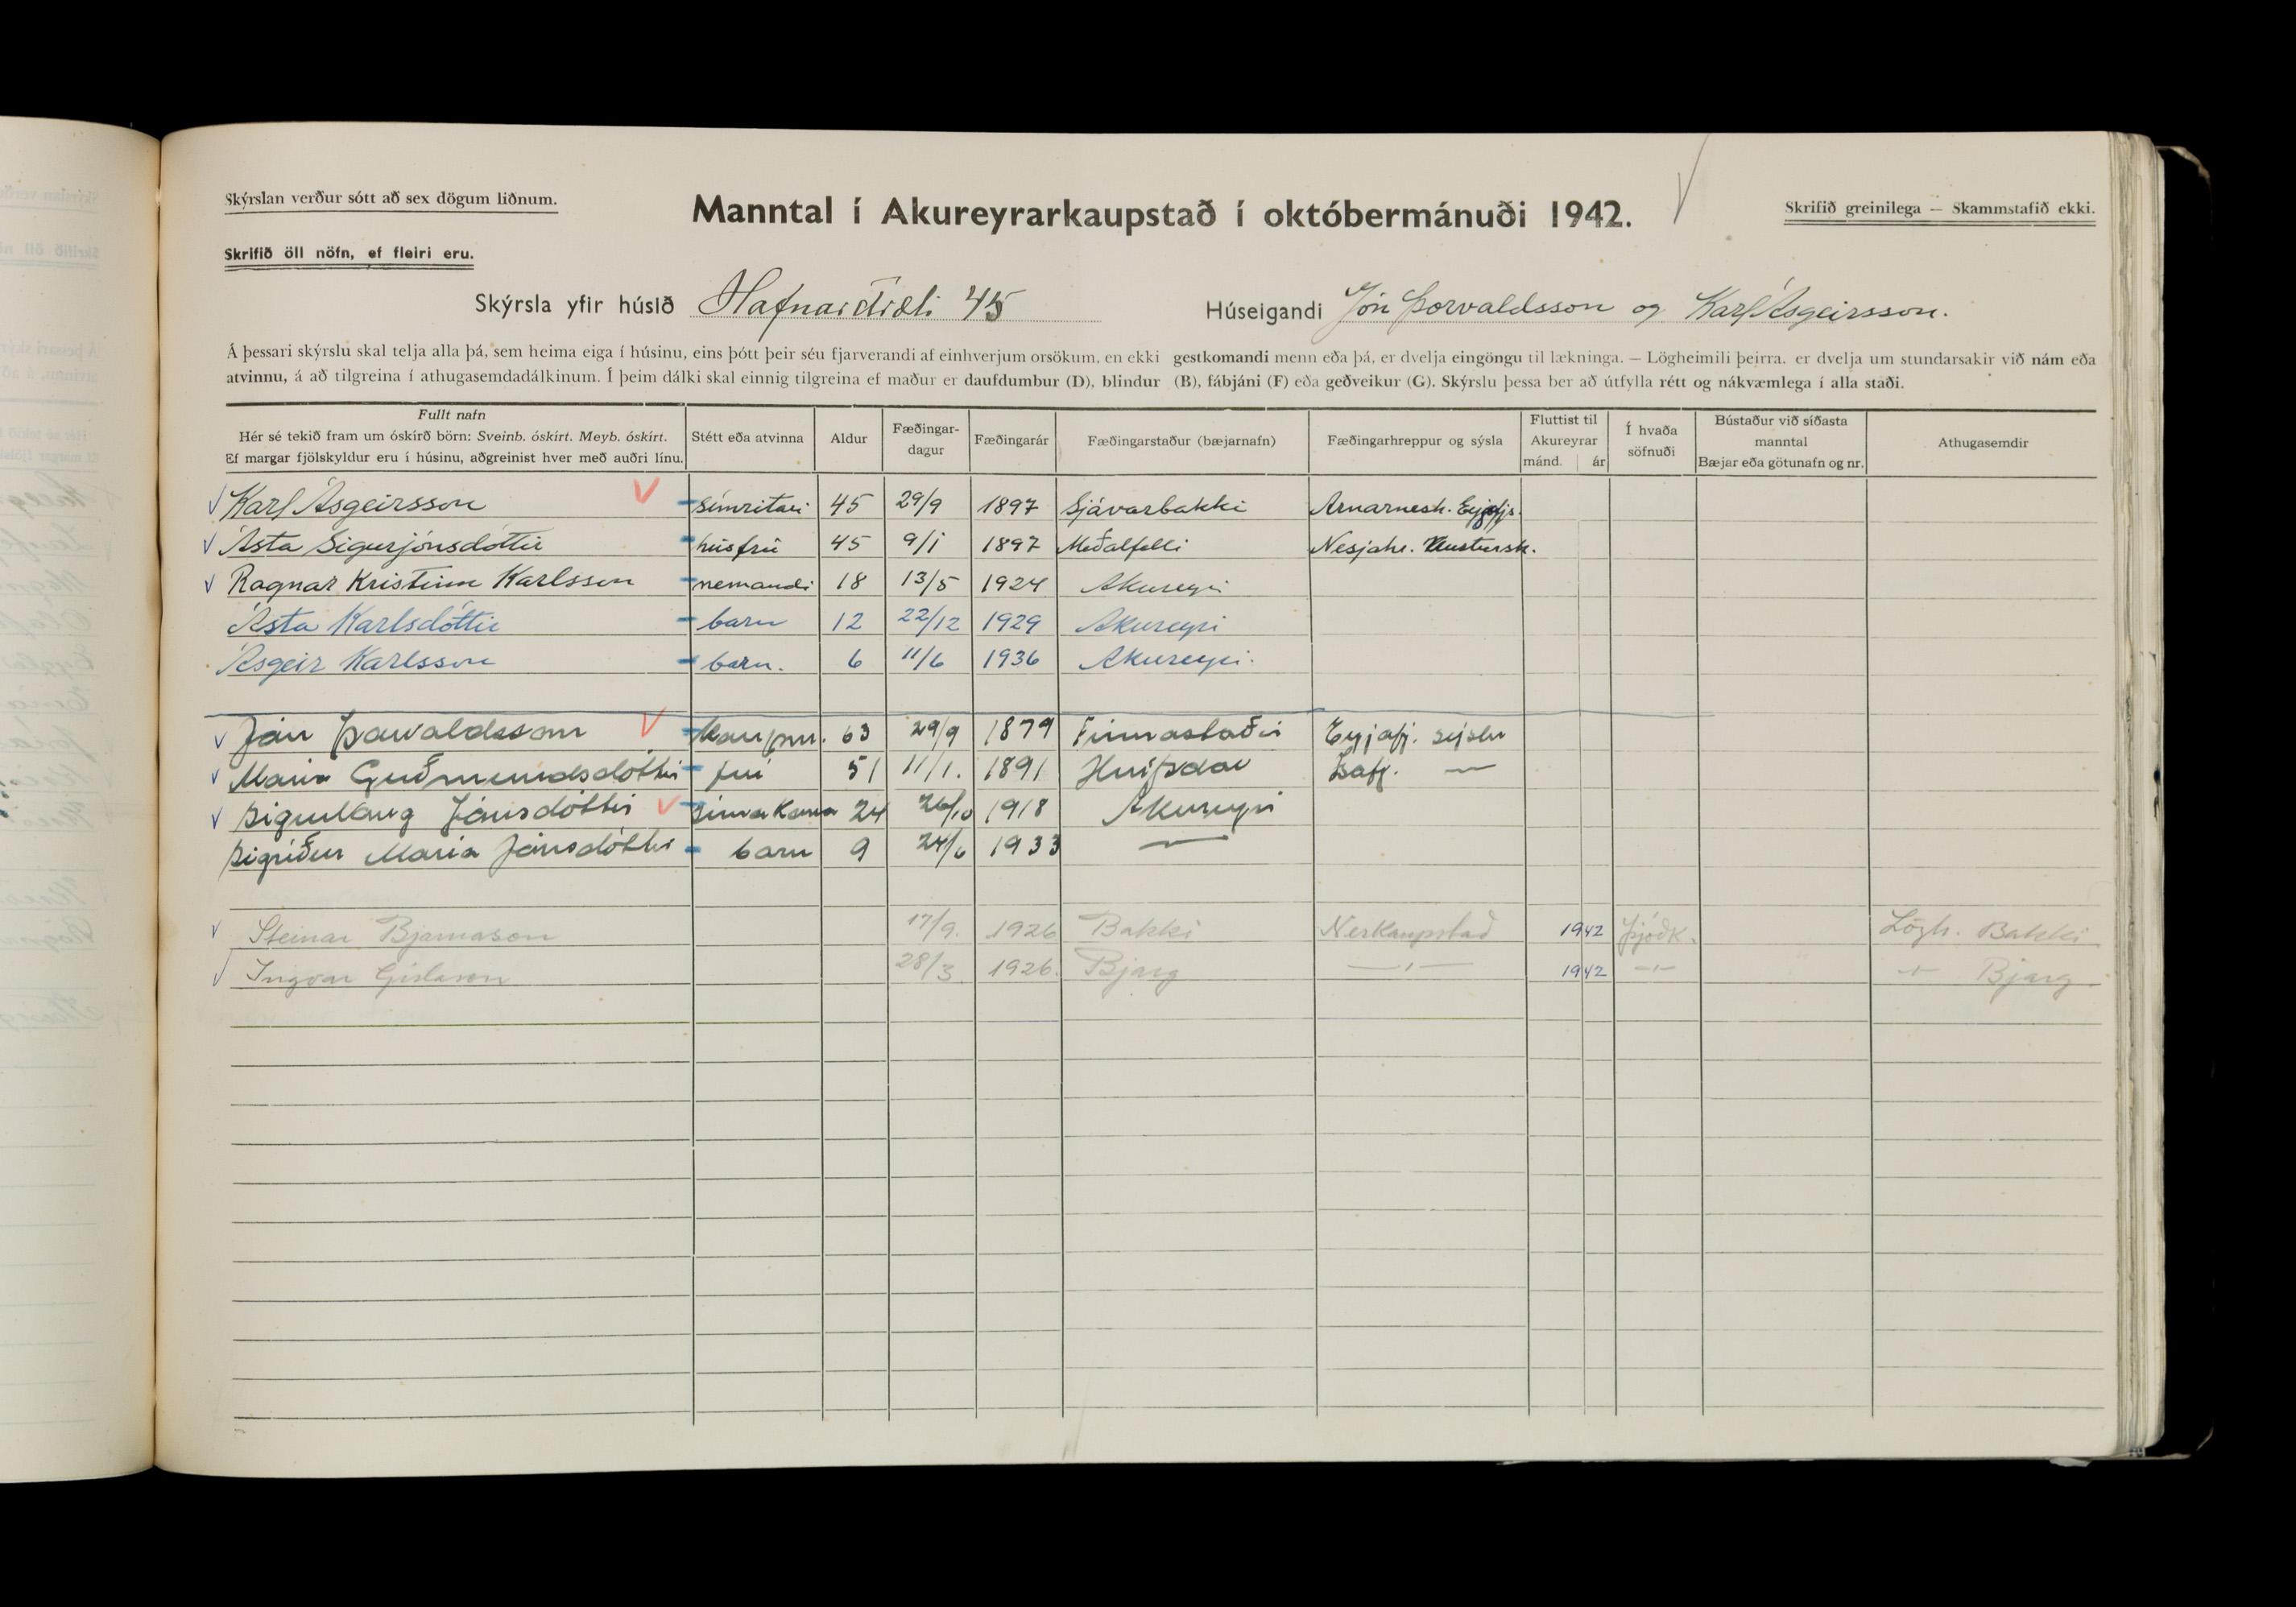 Skýrslan verður sótt að sex dögum liðnum.
Manntal í Akureyrarkaupstað í októbermánuði 1942.
Skrifið greinilega — Skammstafið ekki.
Skrifið öll nöfn, ef fleiri eru.
Skýrsla yfir húsið Hafnarstræti 45 Húseigandi Jón Þorvaldsson og Karl Ásgeirsson.
Á þessari skýrslu skal telja alla þá, sem heima eiga í húsinu, eins þótt þeir séu fjarverandi af einhverjum orsökum, en ekki gestkomandi menn eða þá, er dvelja eingöngu til lækninga. — Lögheimili þeirra, er dvelja um stundarsakir við nám eða
atvinnu, á að tilgreina í athugasemdadálkinum. Í þeim dálki skal einnig tilgreina ef maður er daufdumbur (D), blindur (B), fábjáni (F) eða geðveikur (G). Skýrslu þessa ber að útfylla rétt og nákvæmlega í alla staði.
Fullt nafn
Hér sé tekið fram um óskírð börn: Sveinb. óskírt. Meyb. óskírt.
Ef margar fjölskyldur eru í húsinu, aðgreinist hver með auðri línu.
Stétt eða atvinna
Aldur
Fæðingar-
dagur
Fæðingarár
Fæðingarstaður (bæjarnafn)
Fæðingarhreppur og sýsla
Fluttist til
Akureyrar
mánd. ár
Í hvaða
söfnuði
Bústaður við síðasta
manntal
Bæjar eða götunafn og nr.
Athugasemdir
Karl Ásgeirsson símritari 45 29/9 1897 Sjávarbakki Arnarnesh. Eyjafjs.
Ásta Sigurjónsdóttir húsfrú 45 9/1 1897 Meðalfelli Nesjahr. Austursk.
Ragnar Kristinn Karlsson nemandi 18 13/5 1924 Akureyri
Ásta Karlsdóttir barn 12 22/12 1929 Akureyri
Ásgeir Karlsson barn. 6 11/6 1936 Akureyri.
Jón Þorvaldsson kaupm. 63 29/9 1879 Finnastaðir Eyjafj. sýslu
María Guðmundsdóttir frú 51 11/1. 1891 Hnífsdal Ísafj. —
Sigurlaug Jónsdóttir símakona 24 26/10 1918 Akureyri
Sigríður María Jónsdóttir barn 9 24/6 1933 —
Steinar Bjarnason 17/9. 1926 Bakki Neskaupstað 1942 Þjóðk. Lögh. Bakki
Ingvar Gíslason 28/3. 1926. Bjarg —"— 1942 —"— —"— Bjarg